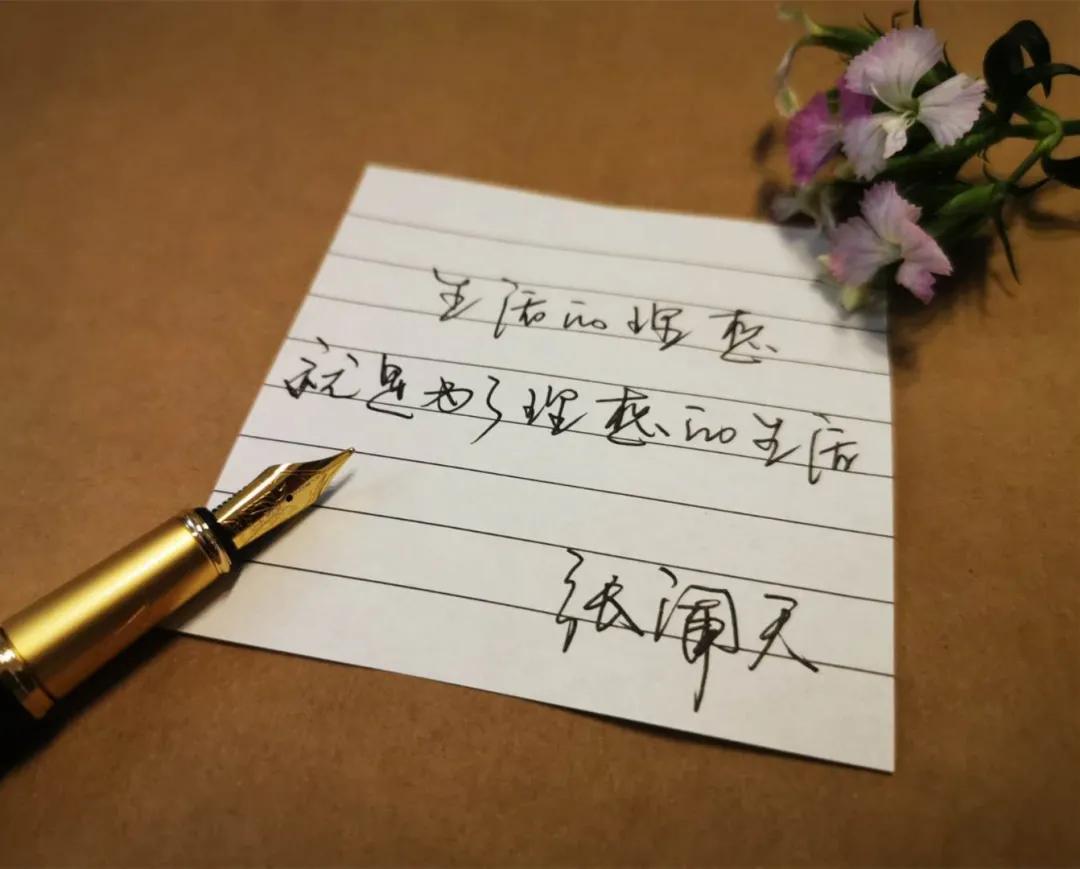 生活的理想
就是为了理想的生活
张闻天